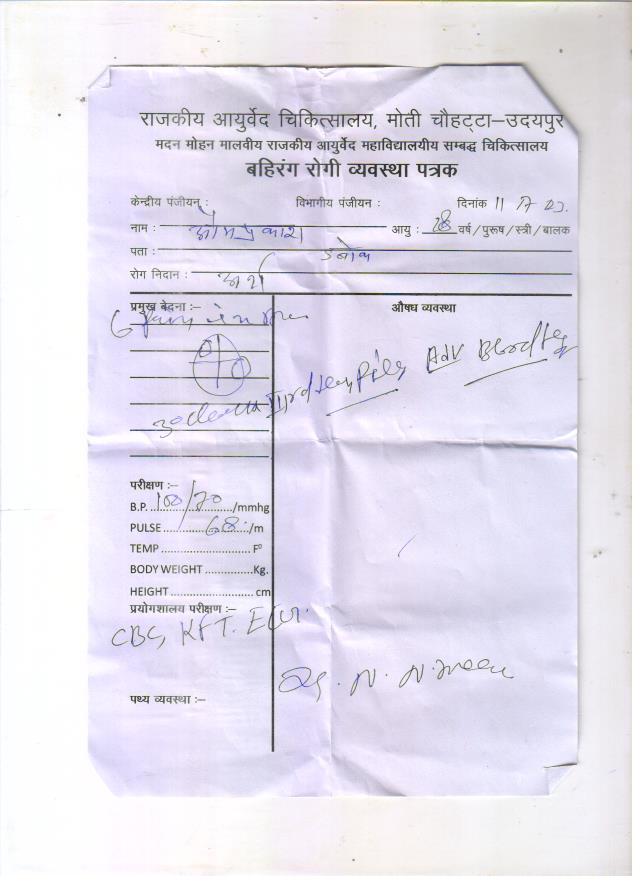 राजकीय आयुर्वेद चिकित्सालय, मोती चौहट्टा–उदयपुर
मदन मोहन मालवीय राजकीय आयुर्वेद महाविद्यालयीय सम्बद्ध चिकित्सालय
बहिरंग रोगी व्यवस्था पत्रक
केन्द्रीय पंजीयन : विभागीय पंजीयन : दिनांक 11
नाम : ओमप्रकाश आयु : वर्ष/पुरूष/स्त्री/बालक
पता :– डबोक
रोग निदान : अर्श
प्रमुख बेदना :–
औषध व्यवस्था
Adv
परीक्षण :–
B.P. 100/70 /mmhg
PULSE 68 /m
TEMP F⁰
BODY WEIGHT Kg.
HEIGHT cm
प्रयोगशालय परीक्षण :–
CBC, KFT.
पथ्य व्यवस्था :–